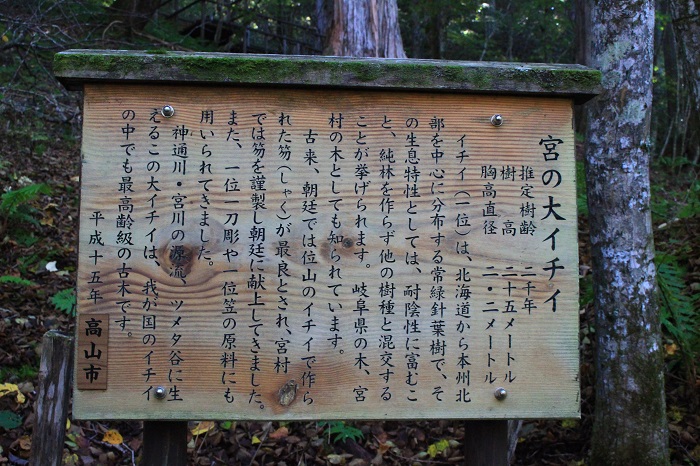 宮の大イチイ
推定樹齢　二千年
樹　高　二十五メートル
胸高直径　二・二メートル
イチイ（一位）は、北海道から本州北
部を中心に分布する常緑針葉樹で、そ
の生息特性としては、耐陰性に富むこ
と、純林を作らず他の樹種と混交する
ことが挙げられます。岐阜県の木、宮
村の木としても知られています。
古来、朝廷では位山のイチイで作ら
れた笏（しゃく）が最良とされ、宮村
では笏を謹製し朝廷に献上してきました。
また、一位一刀彫や一位笠の原料にも
用いられてきました。
神通川・宮川の源流、ツメタ谷に生
えるこの大イチイは、我が国のイチイ
の中でも最高齢級の古木です。
平成十五年
高山市